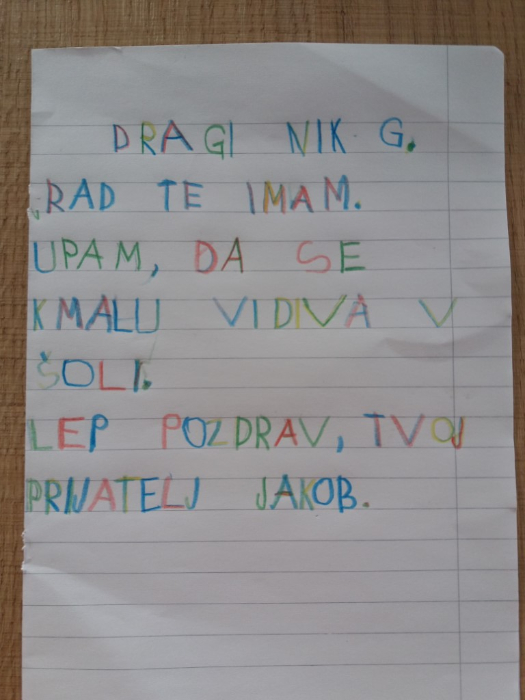 DRAGI NIK G.
RAD TE IMAM.
UPAM, DA SE
KMALU VIDIVA V
ŠOLI.
LEP POZDRAV, TVOJ
PRIJATELJ JAKOB.